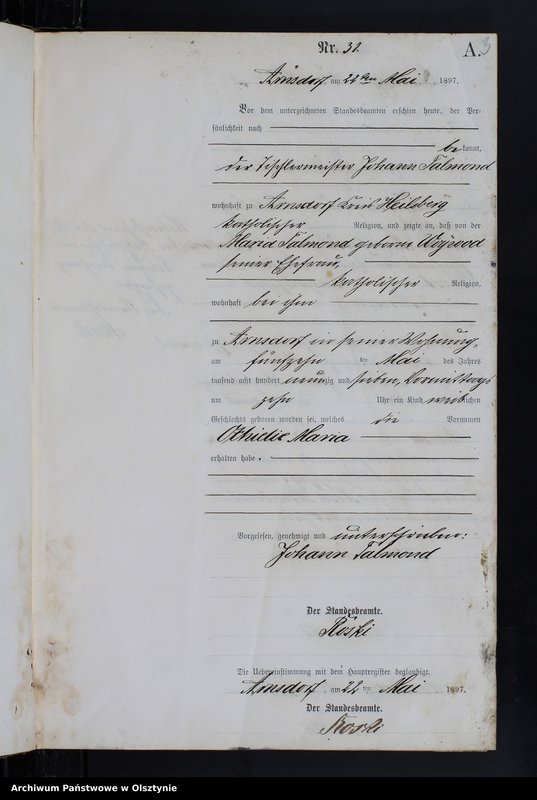 Nr. 32.
A.
3
Arnsdorf, am 22ten Mai 1897.
Vor dem unterzeichneten Standesbeamten erschien heute, der Per-
sönlichkeit nach
be kannt,
der Tischlermeister Johann Talmond
wohnhaft zu Arnsdorf Kreis Heilsberg
katholischer Religion, und zeigte an, daß von der
Maria Talmond geborene
seiner Ehefrau,
katholischer Religion,
wohnhaft bei ihm
zu Arnsdorf in seiner Wohnung,
am fünfzehn ten Mai des Jahres
tausend acht hundert neunzig und sieben, Vormittags
um zehn Uhr ein Kind weiblichen
Geschlechts geboren worden sei, welches die Vornamen
Ottilie Maria
erhalten habe.
Vorgelesen, genehmigt und unterschrieben:
Johann Talmond
Der Standesbeamte.
Roski
Die Uebereinstimmung mit dem Hauptregister beglaubigt.
Arnsdorf, am 22 ten Mai 1897.
Der Standesbeamte.
Roski
Archiwum Państwowe w Olsztynie